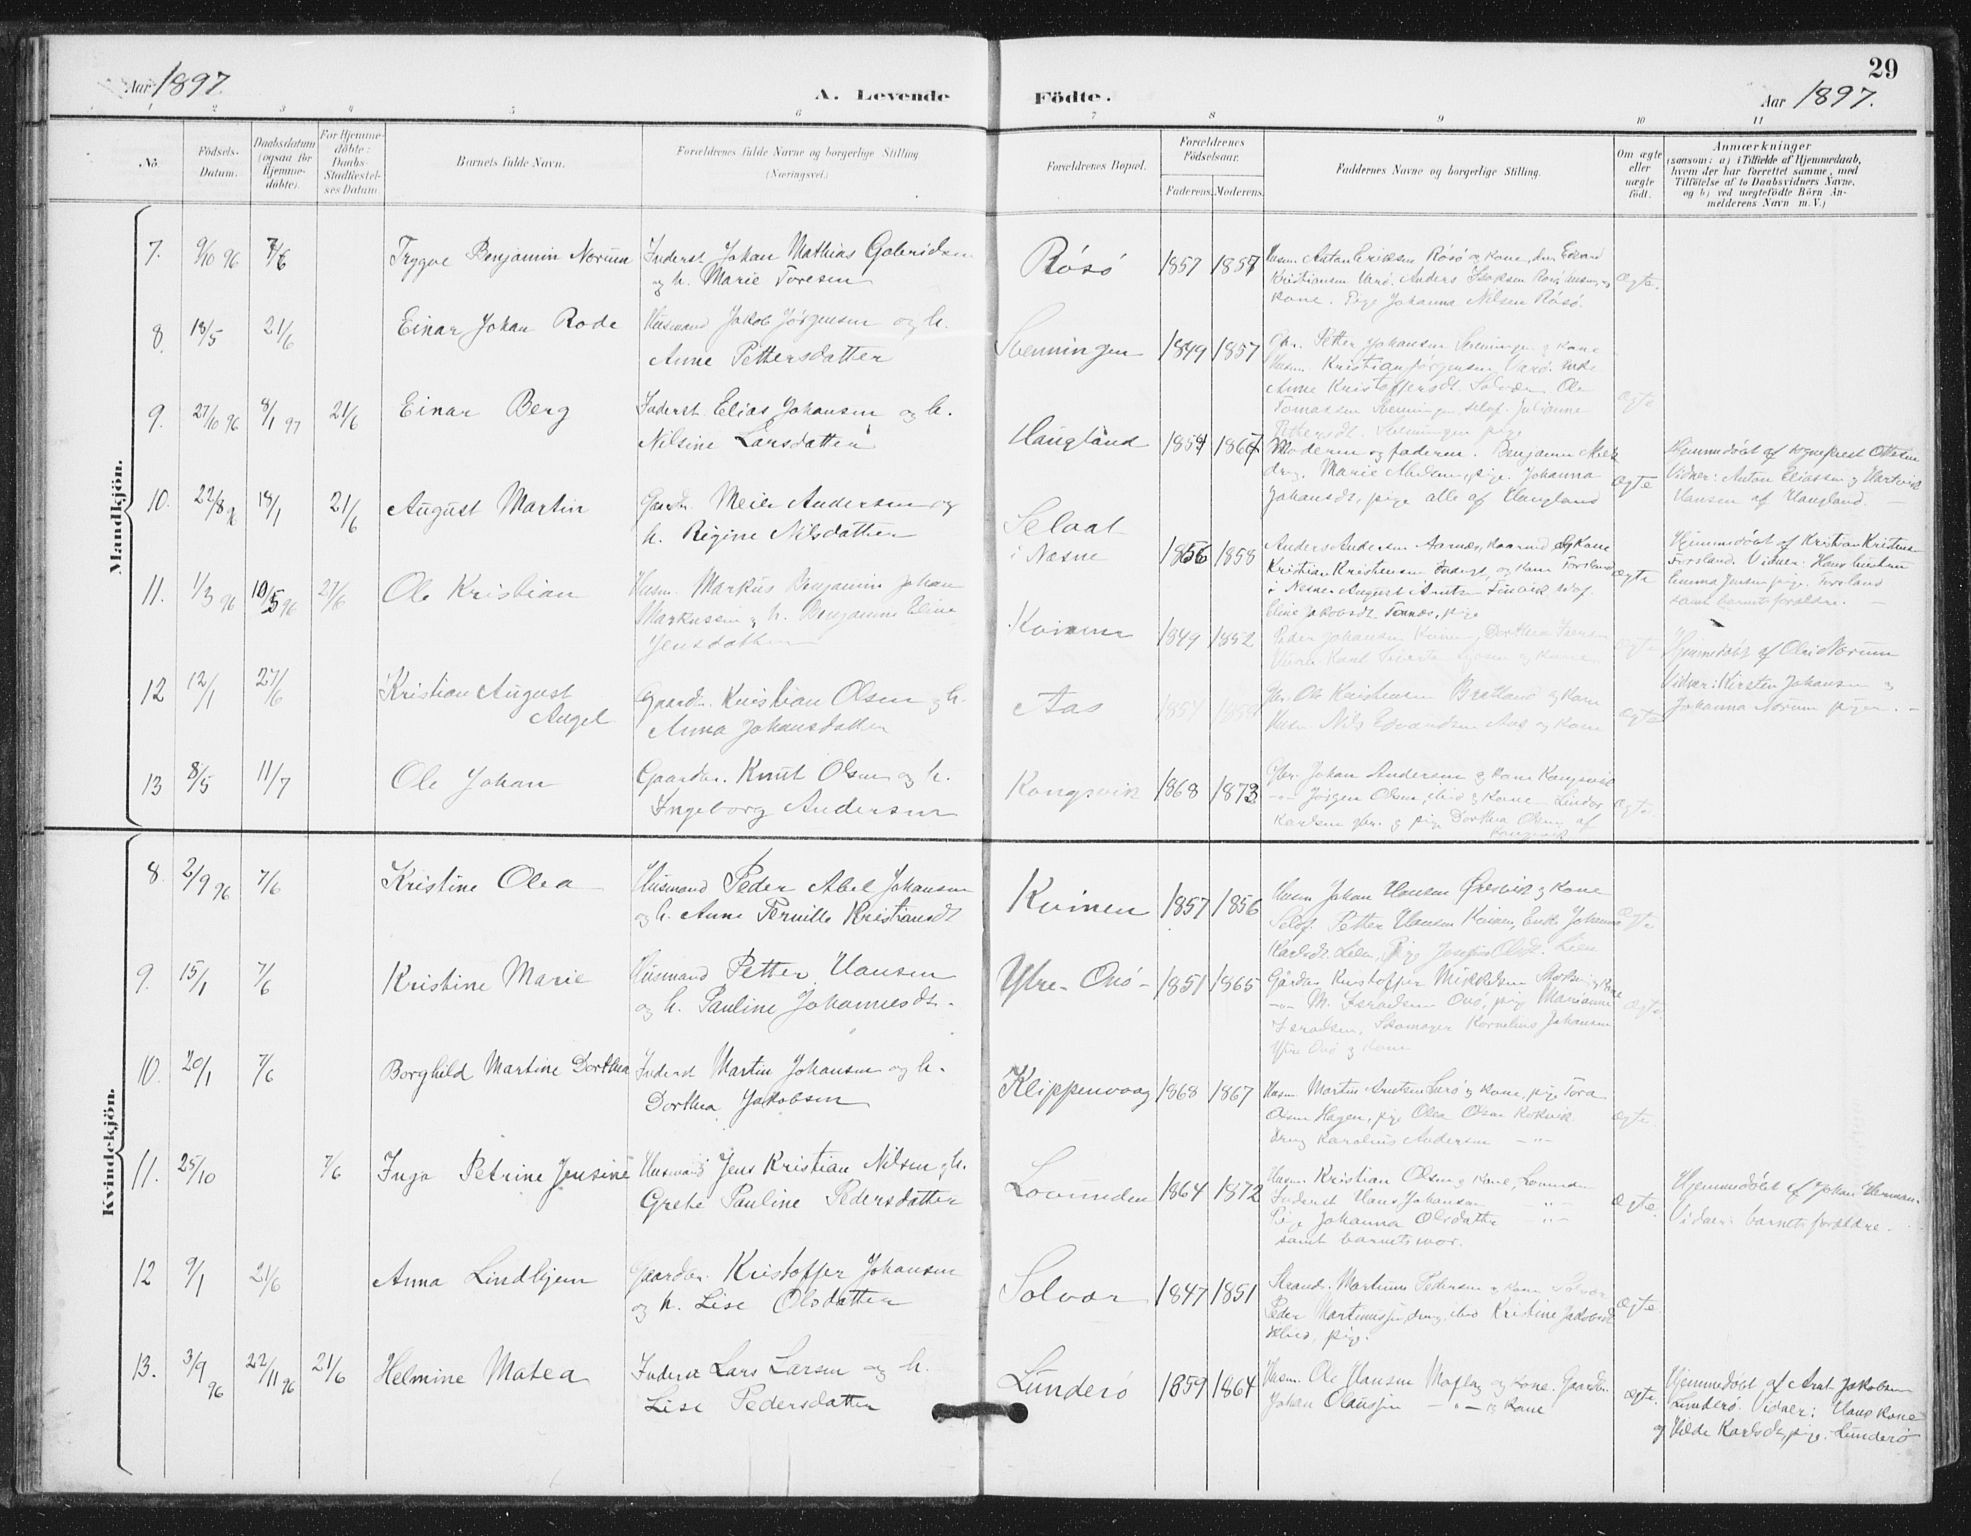 Aar 1897
A. Levende Födte.
Aar 1897.
29
1 2 3 4 5 6 7 8 9 10 11
No
Födsels-Datum.
Daabsdatum (ogsaa for Hjemme-döbte).
For Hjemme-döbte: Daabs-Stadfæstel-ses Datum
Barnets fulde Navn.
Forældrenes fulde Navne og borgerlige Stilling
(Næringsvei.)
Forældrenes Bopæl.
Forældrenes Födselsaar.
Faderens. Moderens.
Faddernes Navne og borgerlige Stilling.
Om ægte eller uægte födt.
Anmærkninger
(saasom: a) i Tilfælde af Hjemmedaab,
hvem der har forrettet samme, med
Tilföielse af to Daabsvidners Navne,
og b) ved uægtefödte Börn An-
melderens Navn m. V.)
Mandkjön.
7. 9/10 96 7/6 Trygve Benjamin Norum Inderst Johan Mathias Gabrielsen
og h. Marie Toresen
Rösö 1857 1857
Kristiansen Varö. Anders Isaksen
kone. Pige Johanna Nilsen Rösö.
ægte.
8. 18/5 21/6 Einar Johan Rode Husmand Jakob Jørgensen og h.
Anne Pettersdatter
Svenningen 1849 1857
Gbr. Petter Johansen Svenningen og kone
Husm. Kristian Jørgensen Varö. Enke
Anne Kristoffersdt. Solvær Ole
Tomassen Svenningen, selvf. Julianne
Pettersdt. Svenningen pige
ægte
9. 27/10 96 8/1 97 21/6 Einar Berg Inderst Elias Johansen og h.
Nilsine Larsdatter
Haugland 1859 1867
Moderen og faderen. Benjamin
dreng, Marie Nielsen, pige. Johanna
Johansdt, pige alle af Haugland
ægte
Hjemmedöbt af sogneprest Ottesen
Vidner: Anton Eliassen og Hartvik
Hansen af Haugland.
10. 22/8 96 18/1 21/6 August Martin Gaardbr. Meier Andersen og
h. Regine Nilsdatter
Selvaat
i Næsne
1856 1858
Anders Andersen Aarnæs, kaarmd og kone
Kristian Kristensen Inderst, og kone Forsland
i Nesne August Arntsen Finvik selvf.
Eline Jakobsdt. Tonnes, pige
ægte
Hjemmedöbt af Kristian Kristens.
Forsland. Vidner: Hans
Emma Jensen pige. Forsland
samt barnets forældre.
11. 1/3 96 10/5 96 21/6 Ole Kristian Husm. Markus Benjamin Johan
Markussen og h. Benjamine Eline
Jensdatter
Kvinen 1849 1852
Peder Johansen Kvinen, Dorthea
ægte
Hjemmedöbt af Olai Norum
Vidner: Kirsten Johansen og
Johanna Norum piger.
12 12/1 27/6 Kristian August
Angel
Gaardbr. Kristian Olsen og h.
Anna Johansdatter
Aas 1854 1859
Gbr. Ole Kristensen og kone
Husm. Nils Edvardsen Aas og kone
ægte
13 8/5 11/7 Ole Johan Gaardbr. Knut Olsen og h.
Ingeborg Andersen
Kongsvik 1868 1873
Gbr. Johan Andersen og kone Kongsvik
-"- Jörgen Olsen, ibid og kone
Karlsen gbr. og pige Dorthea Olsen af
Kongsvik
ægte.
Kvindekjön.
8. 2/9 96 7/6 Kristine Olea Husmand Peder Abel Johansen
og h. Anne Pernille Kristiansdt
Kvinen 1857 1856
Husm Johan Hansen Öresvik og kone
Selvf. Petter Hansen Kvinen, Enke Johanna
Karlsdt. Leen, Pige Josefine Olsdt. Leen
ægte
9. 15/1 7/6 Kristine Marie Husmand Petter Hansen
og h. Pauline Johannesdt.
Ytre-Onö 1851 1865
Gårdbr Kristoffer Mikkelsen og kone
-"- M. Israelsen Onö, pige Marianne
Israelsen, Skomager Kornelius Johansen
Ytre Onö og kone
ægte.
10. 20/1 7/6 Borghild Martine Dorthea Inderst Martin Johansen og h.
Dorthea Jakobsen
Klippenvaag 1868 1867
Husm. Martin Arntsen Lurö og kone, pige Tora
Olsen Hagen, pige Olea Olsen Kokvik
Dreng Karolius Andersen -"-
ægte.
11. 25/10 7/6 Inga Petrine Jensine Husmand Jens Kristian Nilsen og h.
Grethe Pauline Pedersdatter
Lovunden 1864 1872
Husm. Kristian Olsen og kone, Lovunden
Inderst Hans Johansen -"-
Pige Johanna Olsdatter -"-
samt barnets mor.
ægte.
Hjemmedöbt af Johan Herman.
Vidner: barnets forældre.
12 9/1 21/6 Anna Lindhjem Gaardbr. Kristoffer Johansen
og h. Lise Olsdatter
Solvær 1847 1851
Strand. Martinus Pedersen og kone Solvær
Peder Martinussen, dreng, ibid Kristine Jakobsdt
ibid, pige.
ægte.
13. 3/9 96 22/11 96 21/6 Helmine Matea Inderst Lars Larsen og h.
Lise Pedersdatter
Lunderö 1859 1864
Husm. Ole Hansen Moflag og kone. Gaardbr.
Johan Olaussen -"- og kone
ægte.
Hjemmedöbt af Arnt Jakobsen
Lunderö. Vidner: Hans kone
og Hilde Karlsdt, pige. Lunderö